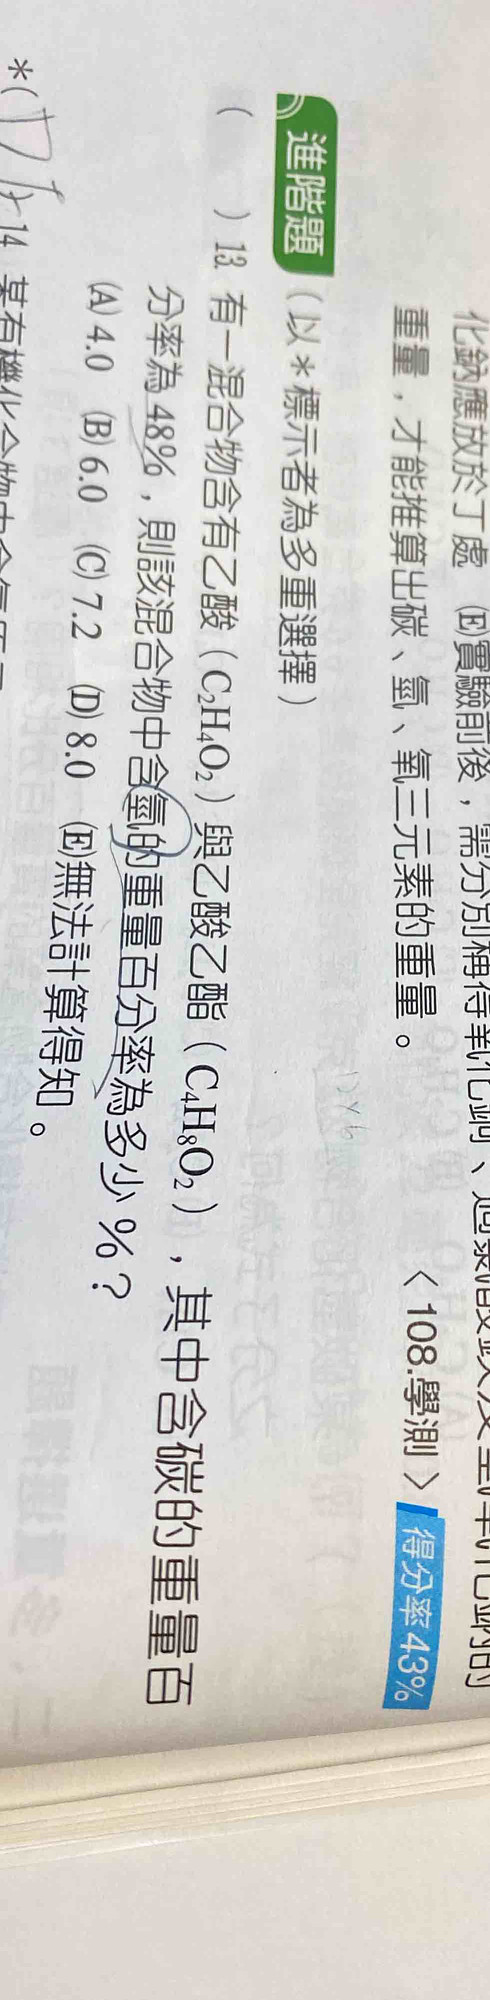 化鈉應放於丁處　(E)實驗前後，需分別稱得氧化銅、過氯酸鎂及氫氧化鈉的
重量，才能推算出碳、氫、氧三元素的重量。　〈108.學測〉　得分率43%
進階題（以＊標示者為多重選擇）
（　　）13. 有一混合物含有乙酸（C₂H₄O₂）與乙酸乙酯（C₄H₈O₂），其中含碳的重量百
分率為48%，則該混合物中含氫的重量百分率為多少%？
(A) 4.0　(B) 6.0　(C) 7.2　(D) 8.0　(E)無法計算得知。
*( 14. 某有機化合物